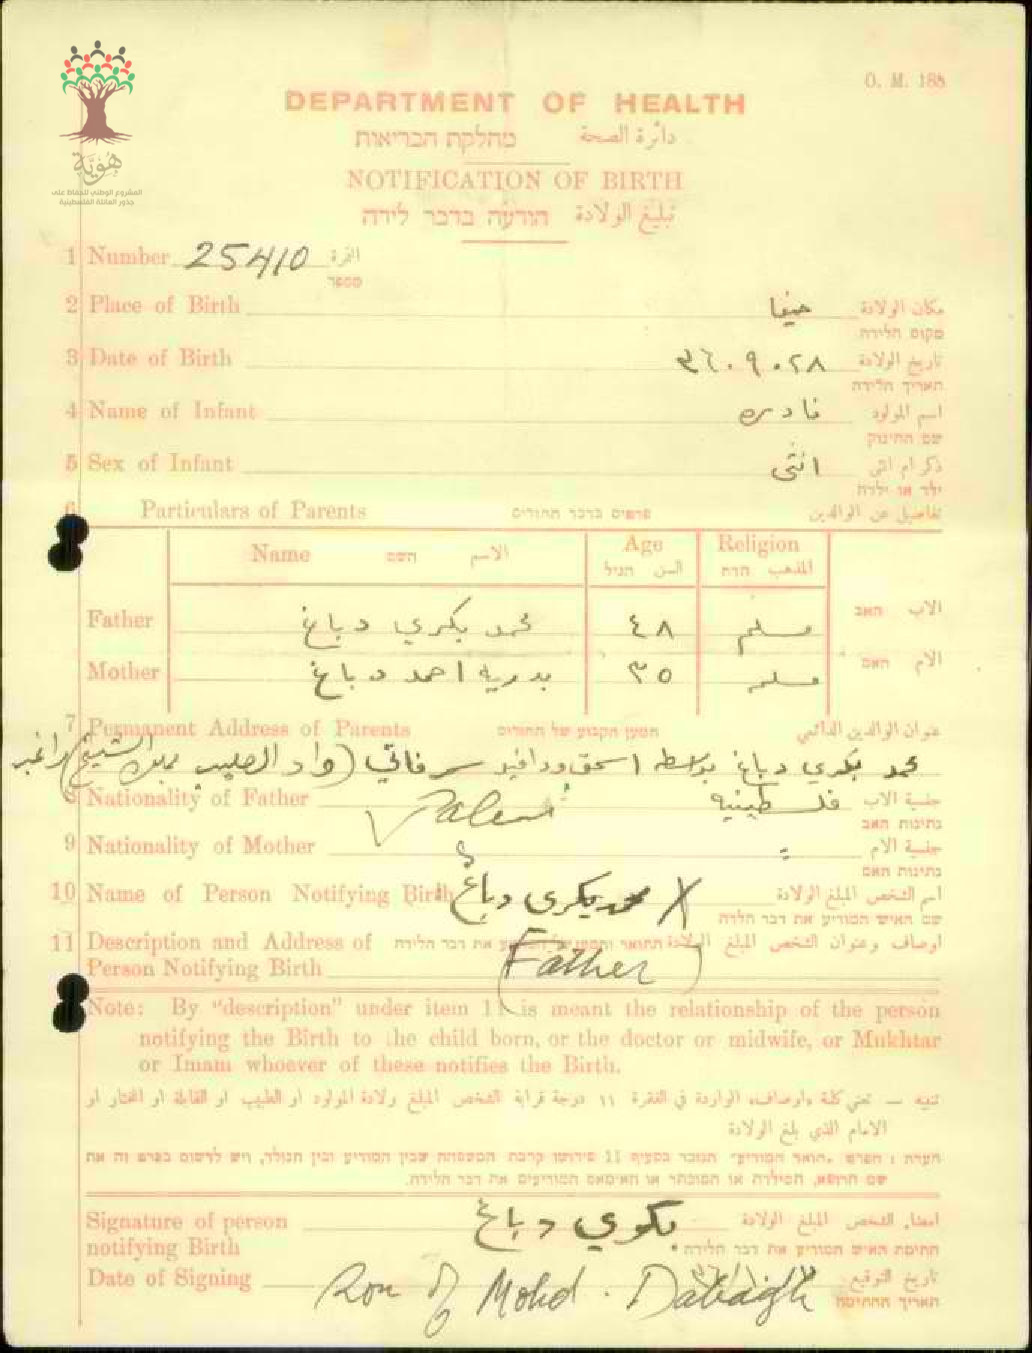 هُوِيَّة
المشروع الوطني للحفاظ على
جذور العائلة الفلسطينية
O. M. 188
DEPARTMENT OF HEALTH
מחלקת הבריאות دائرة الصحة
NOTIFICATION OF BIRTH
הודעה בדבר לידה تبليغ الولادة
1 Number 25410 النمرة
מספר
2 Place of Birth حيفا مكان الولادة
מקום הלידה
3 Date of Birth ٢٨.٩.٣٦ تاريخ الولادة
תאריך הלידה
4 Name of Infant نادره اسم المولود
שם התינוק
5 Sex of Infant انثى ذكر ام انثى
ילד או ילדה
6 Particulars of Parents פרטים בדבר ההורים تفاصيل عن الوالدين
Name השם الاسم Age Religion
السن הגיל المذهب הדת
Father محمد بكري دباغ ٤٨ مسلم الاب האב
Mother بدريه احمد دباغ ٣٥ مسلم الام האם
7 Permanent Address of Parents המען הקבוע של ההורים عنوان الوالدين الدائمي
محمد بكري دباغ بواسطه اسحق ودافيد سرفاتي (واد الصليب
8 Nationality of Father فلسطينيه جنسية الاب
נתינות האב
9 Nationality of Mother جنسية الام
נתינות האם
10 Name of Person Notifying Birth محمد بكري دباغ X اسم الشخص المبلغ الولادة
שם האיש המודיע את דבר הלידה
11 Description and Address of התואר והמען של המודיע את דבר הלידה اوصاف وعنوان الشخص المبلغ الولادة
Person Notifying Birth (Father)
Note: By "description" under item 11 is meant the relationship of the person
notifying the Birth to the child born, or the doctor or midwife, or Mukhtar
or Imam whoever of these notifies the Birth.
تنبيه — تعني كلمة «اوصاف» الواردة في الفقرة ١١ درجة قرابة الشخص المبلغ ولادة المولود او الطبيب او القابلة او المختار او
الامام الذي بلغ الولادة
הערה: הפרט „תואר המודיע" הנזכר בסעיף 11 פירושו קרבת המשפחה שבין המודיע ובין הנולד, ויש לרשום בפרט זה את
שם הרופא, המילדת או המוכתר או האימאם המודיעים את דבר הלידה.
Signature of person بكري دباغ امضاء الشخص المبلغ الولادة
notifying Birth חתימת האיש המודיע את דבר הלידה
Date of Signing تاريخ التوقيع
תאריך החתימה
Son of Mohd. Dabbagh